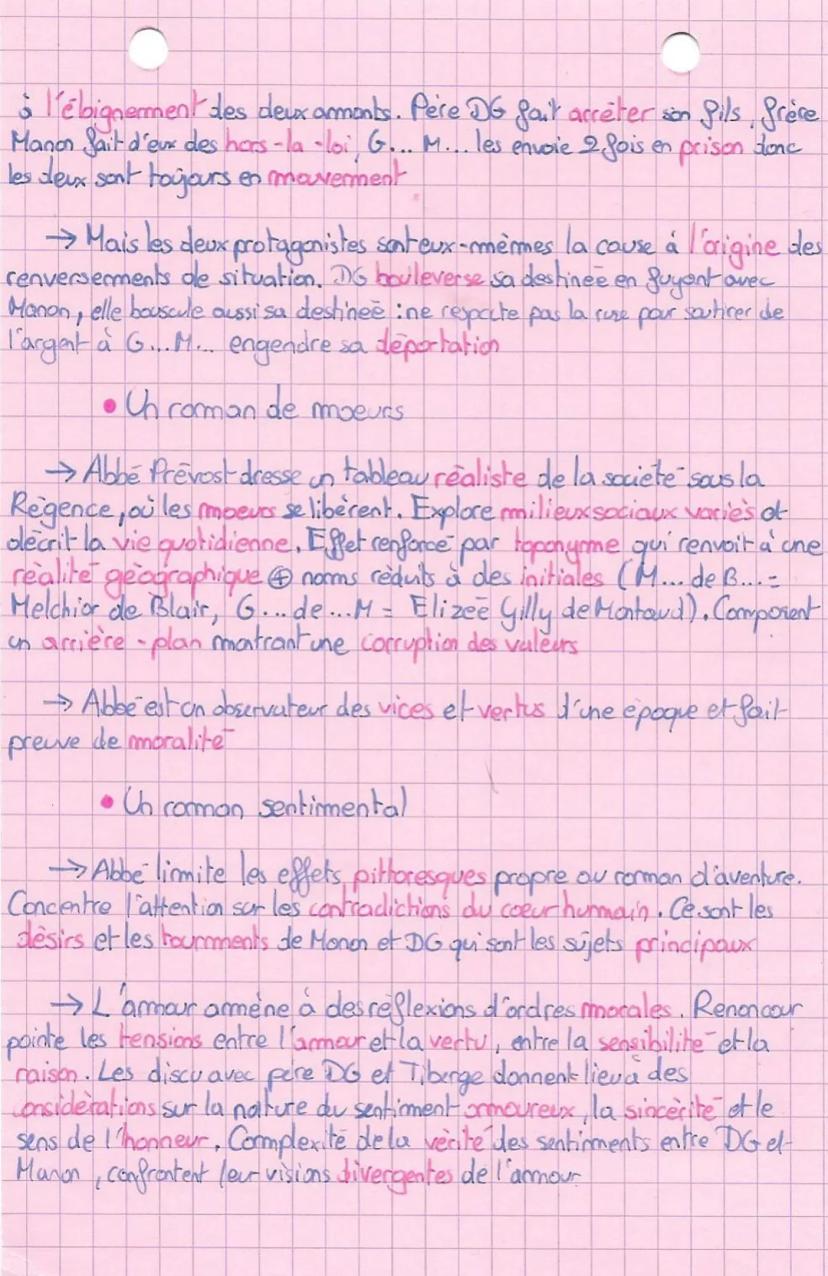 à l'éloignement des deux amants. Père DG fait arrêter son fils, frère
Manon fait d'eux des hors-la-loi, G... M... les envoie 2 fois en prison donc
les deux sont toujours en mouvement
→ Mais les deux protagonistes sont eux-mêmes la cause à l'origine des
renversements de situation. DG bouleverse sa destinée en fuyant avec
Manon, elle bouscule aussi sa destinée : ne respecte pas la ruse pour soutirer de
l'argent à G...M... engendre sa déportation
• Un roman de moeurs
→ Abbé Prévost dresse un tableau réaliste de la société sous la
Régence, où les moeurs se libèrent. Explore milieux sociaux variés et
décrit la vie quotidienne. Effet renforcé par toponyme qui renvoit à une
réalité géographique ⊕ noms réduits à des initiales (M... de B... =
Melchior de Blair, G...de...M = Elizeé Gilly de Montaud). Composent
un arrière-plan montrant une corruption des valeurs
→ Abbé est un observateur des vices et vertus d'une époque et fait
preuve de moralité
• Un roman sentimental
→ Abbé limite les effets pittoresques propre au roman d'aventure.
Concentre l'attention sur les contradictions du coeur humain. Ce sont les
désirs et les tourments de Manon et DG qui sont les sujets principaux
→ L'amour amène à des réflexions d'ordres morales. Renoncour
pointe les tensions entre l'amour et la vertu, entre la sensibilité et la
raison. Les discu avec père DG et Tiberge donnent lieu à des
considérations sur la nature du sentiment amoureux, la sincérité et le
sens de l'honneur. Complexité de la vérité des sentiments entre DG et
Manon, confrontent leur visions divergentes de l'amour